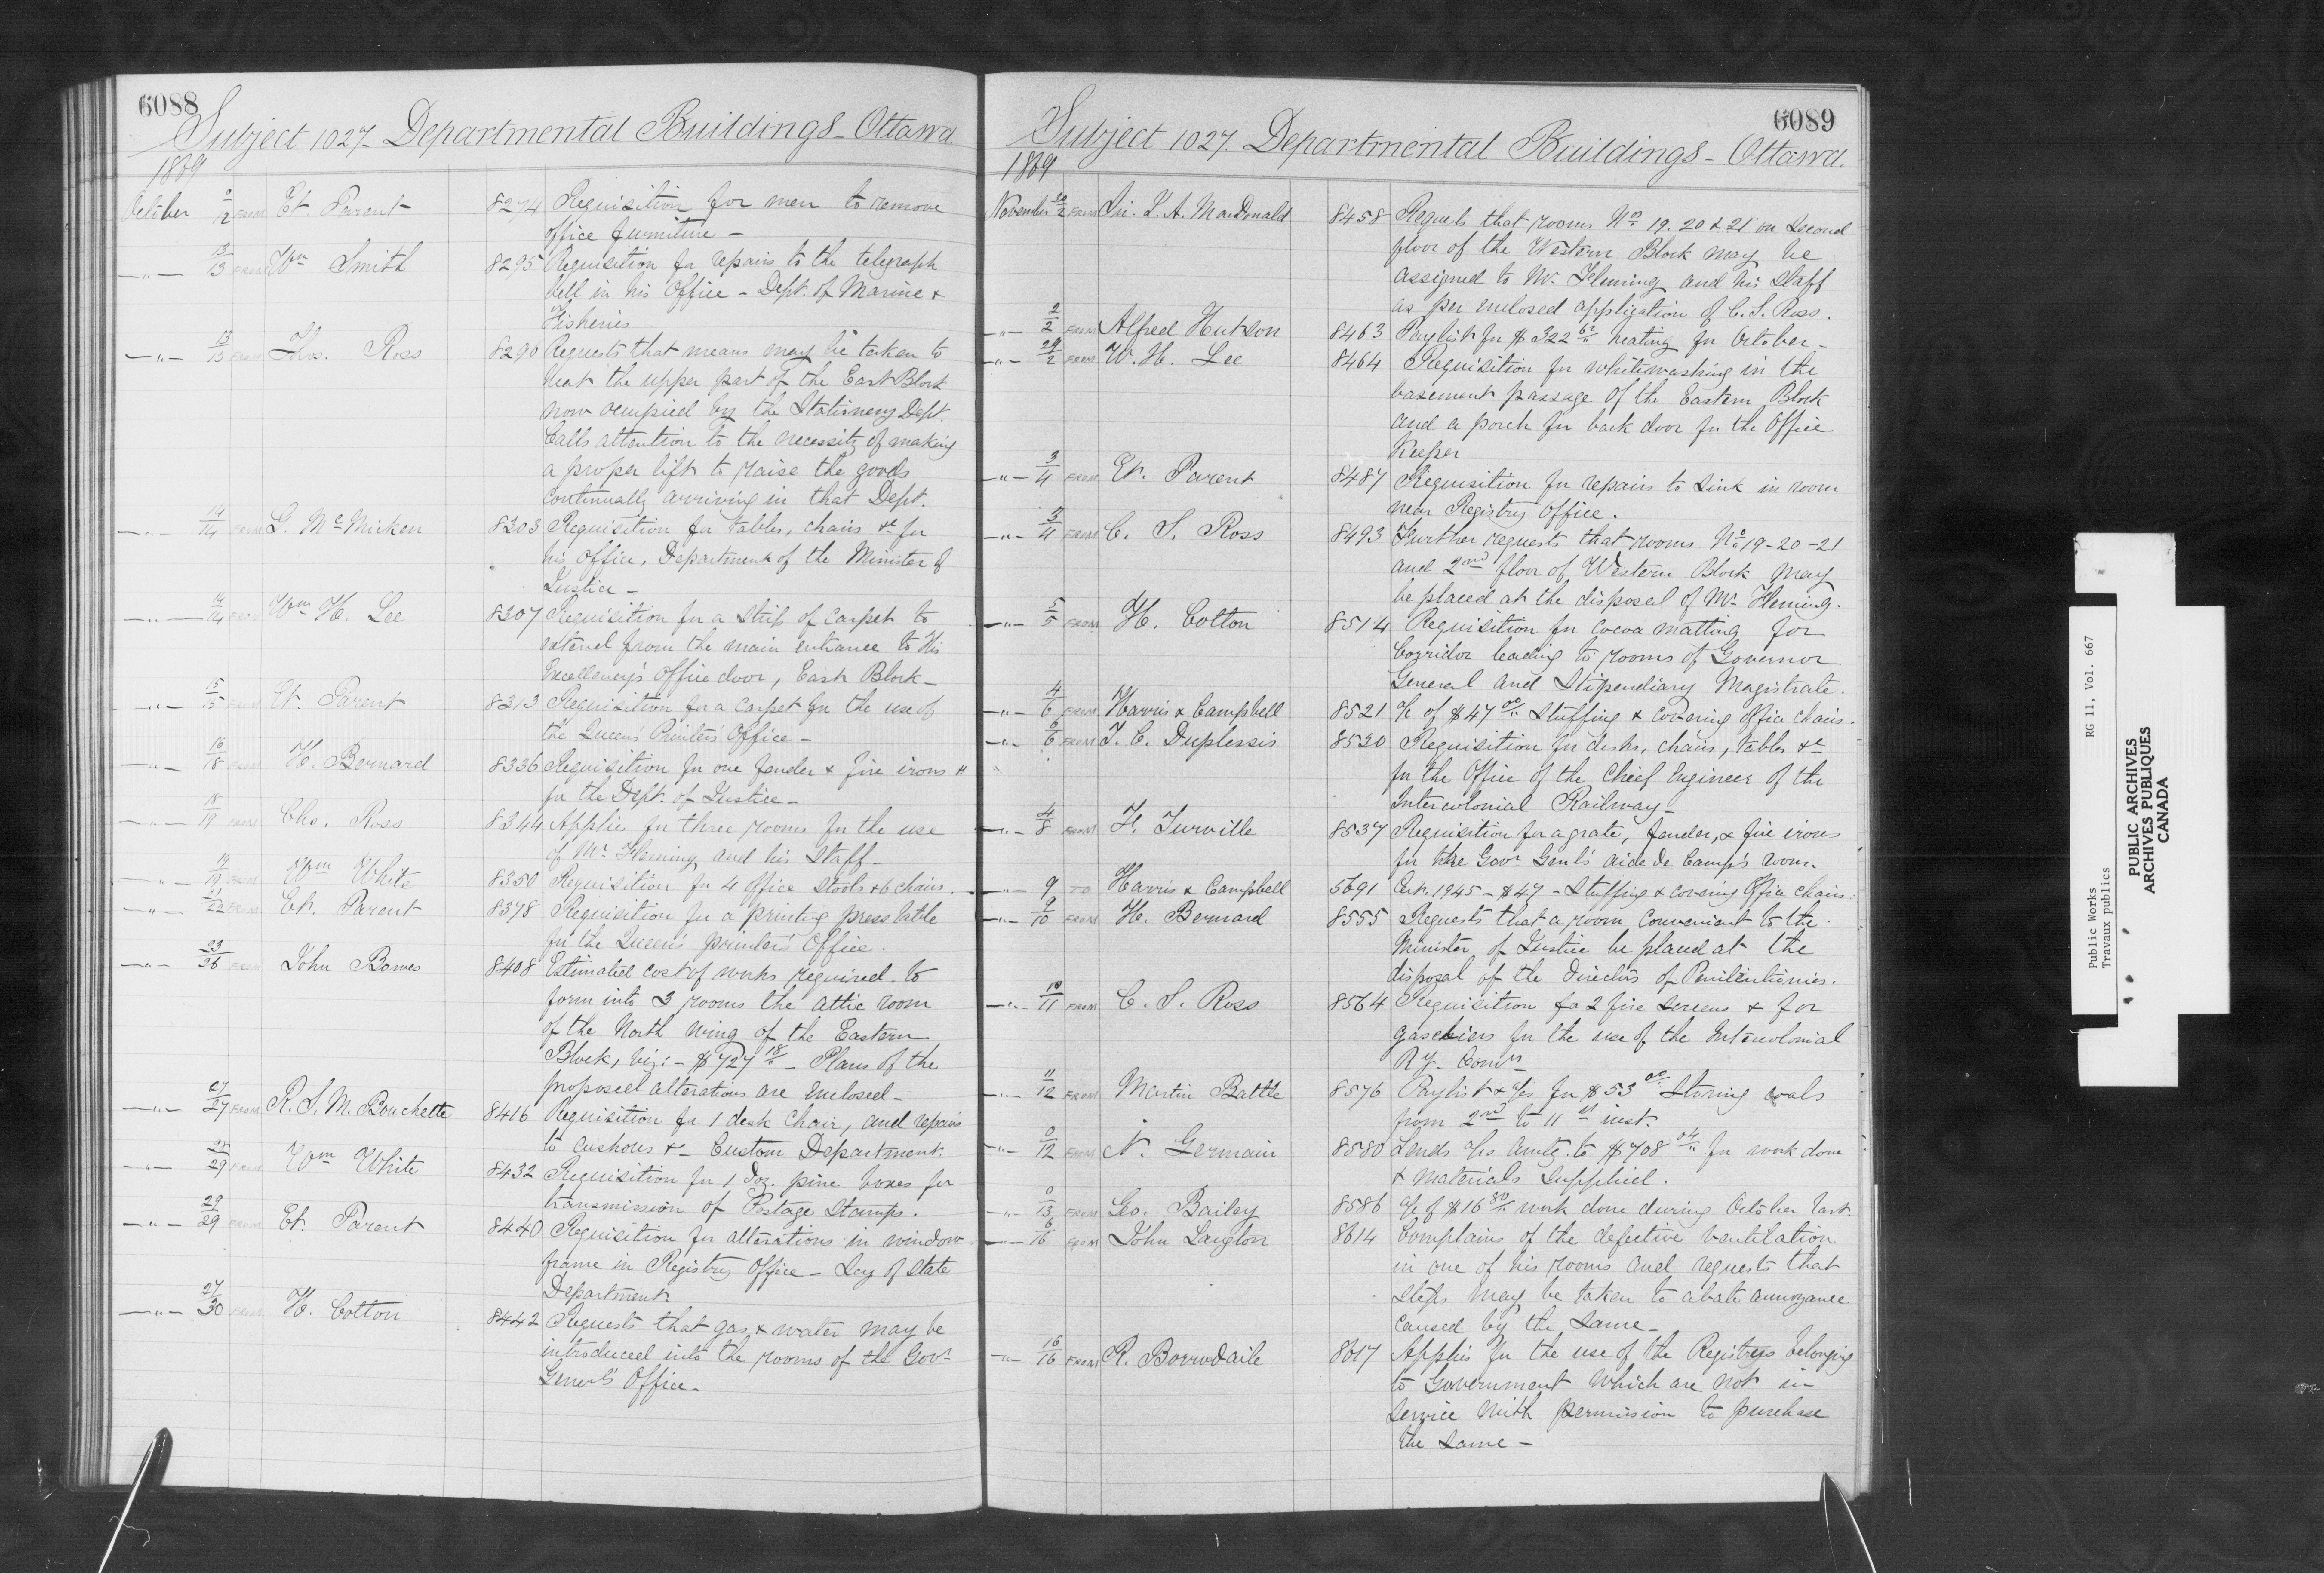 6088
Subject 1027 - Departmental Buildings - Ottawa.
1869
October 2 FROM Et. Parent 8274 Requisition for men to remove
office furniture -
-"- 13/13 FROM Wm Smith 8295 Requisition for repairs to the telegraph
bell in his Office - Dept. of Marine &
Fisheries
-"- 13/13 FROM Thos. Ross 8290 Requests that means may be taken to
heat the upper part of the East Block
now occupied by the Stationery Dept.
Calls attention to the necessity of making
a proper lift to raise the goods
continually arriving in that Dept.
-"- 14/14 FROM G. McMicken 8303 Requisition for tables, chairs &c for
his office, Department of the Minister of
Justice -
-"- 14/14 FROM Wm H. Lee 8307 Requisition for a strip of carpet to
extend from the main entrance to His
Excellency's office door, East Block -
-"- 15/15 FROM Et. Parent 8313 Requisition for a carpet for the use of
the Queen's Printer's Office -
-"- 16/18 FROM H. Bernard 8336 Requisition for one fender & fire irons
for the Dept. of Justice -
-"- 18/19 FROM Chs. Ross 8344 Applies for three rooms for the use
of Mr Fleming and his Staff -
-"- 19/19 FROM Wm White 8350 Requisition for 4 office stools & 6 chairs.
-"- 21/22 FROM Et. Parent 8378 Requisition for a printing press table
for the Queen's printer's Office.
-"- 23/26 FROM John Bowes 8408 Estimated cost of works required to
form into 3 rooms the attic room
of the North wing of the Eastern
Block, viz: - $727 18/" - Plans of the
proposed alterations are enclosed -
-"- 27/27 FROM R. S. M. Bouchette 8416 Requisition for 1 desk chair, and repairs
to cushions &c Custom Department.
-"- 29 FROM Wm White 8432 Requisition for 1 Doz. pine boxes for
transmission of Postage Stamps.
-"- 29/29 FROM Et. Parent 8440 Requisition for alterations in window
frame in Registry Office - Secy of State
Department
-"- 27/30 FROM H. Cotton 8442 Requests that gas & water may be
introduced into the rooms of the Govr
Generl's Office -
6089
Subject 1027. Departmental Buildings - Ottawa.
1869
November 2 FROM Sir. J. A. MacDonald 8458 Requests that rooms No 19. 20 & 21 on Second
floor of the Western Block may be
assigned to Mr. Fleming and his Staff
as per enclosed application of C. S. Ross.
-"- 2/2 FROM Alfred Hutson 8463 Paylist for $322 62/" heating for October -
-"- 29/2 FROM W. H. Lee 8464 Requisition for whitewashing in the
basement passage of the Eastern Block
and a porch for back door for the Office
Keeper
-"- 3/4 FROM Et. Parent 8487 Requisition for repairs to sink in room
near Registry Office.
-"- 3/4 FROM C. S. Ross 8493 Further requests that rooms No 19-20-21
and 2nd floor of Western Block may
be placed at the disposal of Mr Fleming.
-"- 5/5 FROM H. Cotton 8514 Requisition for cocoa matting for
Corridor leading to rooms of Governor
General and Stipendiary Magistrate.
-"- 4/6 FROM Harris & Campbell 8521 a/c of $47 00/" Stuffing & covering office chairs.
-"- 6/6 FROM J. C. Duplessis 8530 Requisition for desks, chairs, tables &c
for the Office of the Chief Engineer of the
Intercolonial Railway -
-"- 4/8 FROM F. Turville 8537 Requisition for a grate, fender, & fire irons
for the Govr Genl's Aide de Camp's room.
-"- 9 TO Harris & Campbell 5691 1945 - $47 - Stuffing & covering Office chairs.
-"- 9/10 FROM H. Bernard 8555 Requests that a room convenient to the
Minister of Justice be placed at the
disposal of the Directors of Penitentiaries.
-"- 10/11 FROM C. S. Ross 8564 Requisition for 2 fire screens & for
gaseliers for the use of the Intercolonial
Ry. Comrs
-"- 11/12 FROM Martin Battle 8576 Paylist & a/cs for $53 00/" Storing coals
from 2nd to 11th inst.
-"- 0/12 FROM N. Germain 8580 Sends a/cs amtg. to $708 04/" for work done
& materials supplied.
-"- 0/13 FROM Geo. Bailey 8586 a/c of $16 80/" work done during October last.
-"- 6/16 FROM John Langton 8614 Complains of the defective ventilation
in one of his rooms and requests that
steps may be taken to abate annoyance
caused by the same -
-"- 16/16 FROM R. Borrodaile 8617 Applies for the use of the Registers belonging
to Government which are not in
service with permission to purchase
the same -
Public Works RG 11, Vol. 667
Travaux publics
PUBLIC ARCHIVES
ARCHIVES PUBLIQUES
CANADA